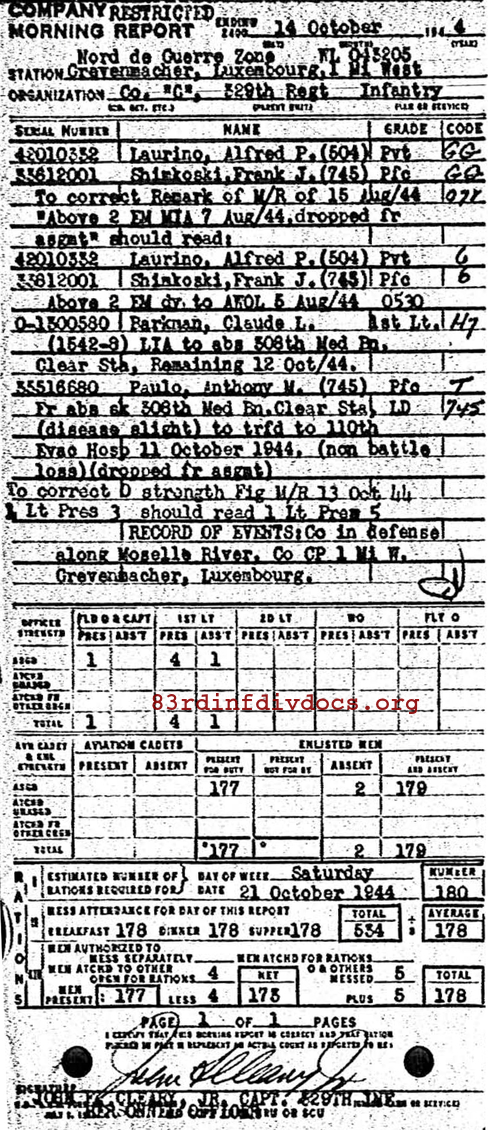 COMPANY RESTRICTED
MORNING REPORT ENDING 2400 14 October 1944
Nord de Guerre Zone NL 043205
STATION Grevenmacher, Luxembourg, 1 Mi West
ORGANIZATION Co. "C", 329th Regt Infantry
SERIAL NUMBER NAME GRADE CODE
42010332 Laurino, Alfred P. (504) Pvt GG
33812001 Shimkoski, Frank J. (745) Pfc GG
To correct Remark of M/R of 15 Aug/44
"Above 2 EM MIA 7 Aug/44, dropped fr
asgmt" should read:
42010332 Laurino, Alfred P. (504) Pvt 6
33812001 Shimkoski, Frank J. (745) Pfc 6
Above 2 EM dy. to AWOL 5 Aug/44 0530
O-1300580 Barkman, Claude L. 1st Lt. H7
(1542-9) LIA to abs 308th Med Bn.
Clear Sta, Remaining 12 Oct/44.
35516680 Paulo, Anthony M. (745) Pfc T
Fr abs sk 308th Med Bn. Clear Sta, LD 745
(disease slight) to trfd to 110th
Evac Hosp 11 October 1944. (non battle
loss) (dropped fr asgmt)
To correct D strength Fig M/R 13 Oct 44
1 Lt Pres 3 should read 1 Lt Pres 5
RECORD OF EVENTS: Co in defense
along Moselle River. Co CP 1 Mi W.
Grevenmacher, Luxembourg.
OFFICER STRENGTH FLD O & CAPT 1ST LT 2D LT WO FLT O
PRES ABS'T PRES ABS'T PRES ABS'T PRES ABS'T PRES ABS'T
ASGD 1 4 1
ATCHD UNASGD
ATCHD FR OTHER ORGN
83rdinfdivdocs.org
TOTAL 1 4 1
AVN CADET & ENL STRENGTH AVIATION CADETS ENLISTED MEN
PRESENT ABSENT PRESENT FOR DUTY PRESENT NOT FOR DY ABSENT PRESENT AND ABSENT
ASGD 177 2 179
ATCHD UNASGD
ATCHD FR OTHER ORGN
TOTAL 177 2 179
RATIONS
ESTIMATED NUMBER OF RATIONS REQUIRED FOR DAY OF WEEK Saturday NUMBER
DATE 21 October 1944 180
MESS ATTENDANCE FOR DAY OF THIS REPORT TOTAL AVERAGE
BREAKFAST 178 DINNER 178 SUPPER 178 534 ÷ 3 178
MEN AUTHORIZED TO
MESS SEPARATELY MEN ATCHD FOR RATIONS
MEN ATCHD TO OTHER ORGN FOR RATIONS 4 NET O & OTHERS MESSED 5 TOTAL
MEN PRESENT: 177 LESS 4 173 PLUS 5 178
PAGE 1 OF 1 PAGES
I CERTIFY THAT THIS MORNING REPORT IS CORRECT AND THAT RATION
FIGURES IN PART III REPRESENT AN ACTUAL COUNT AS REPORTED TO ME:
John F Cleary Jr
SIGNATURE
JOHN F. CLEARY, JR. CAPT. 329TH INF
PERSONNEL OFFICER